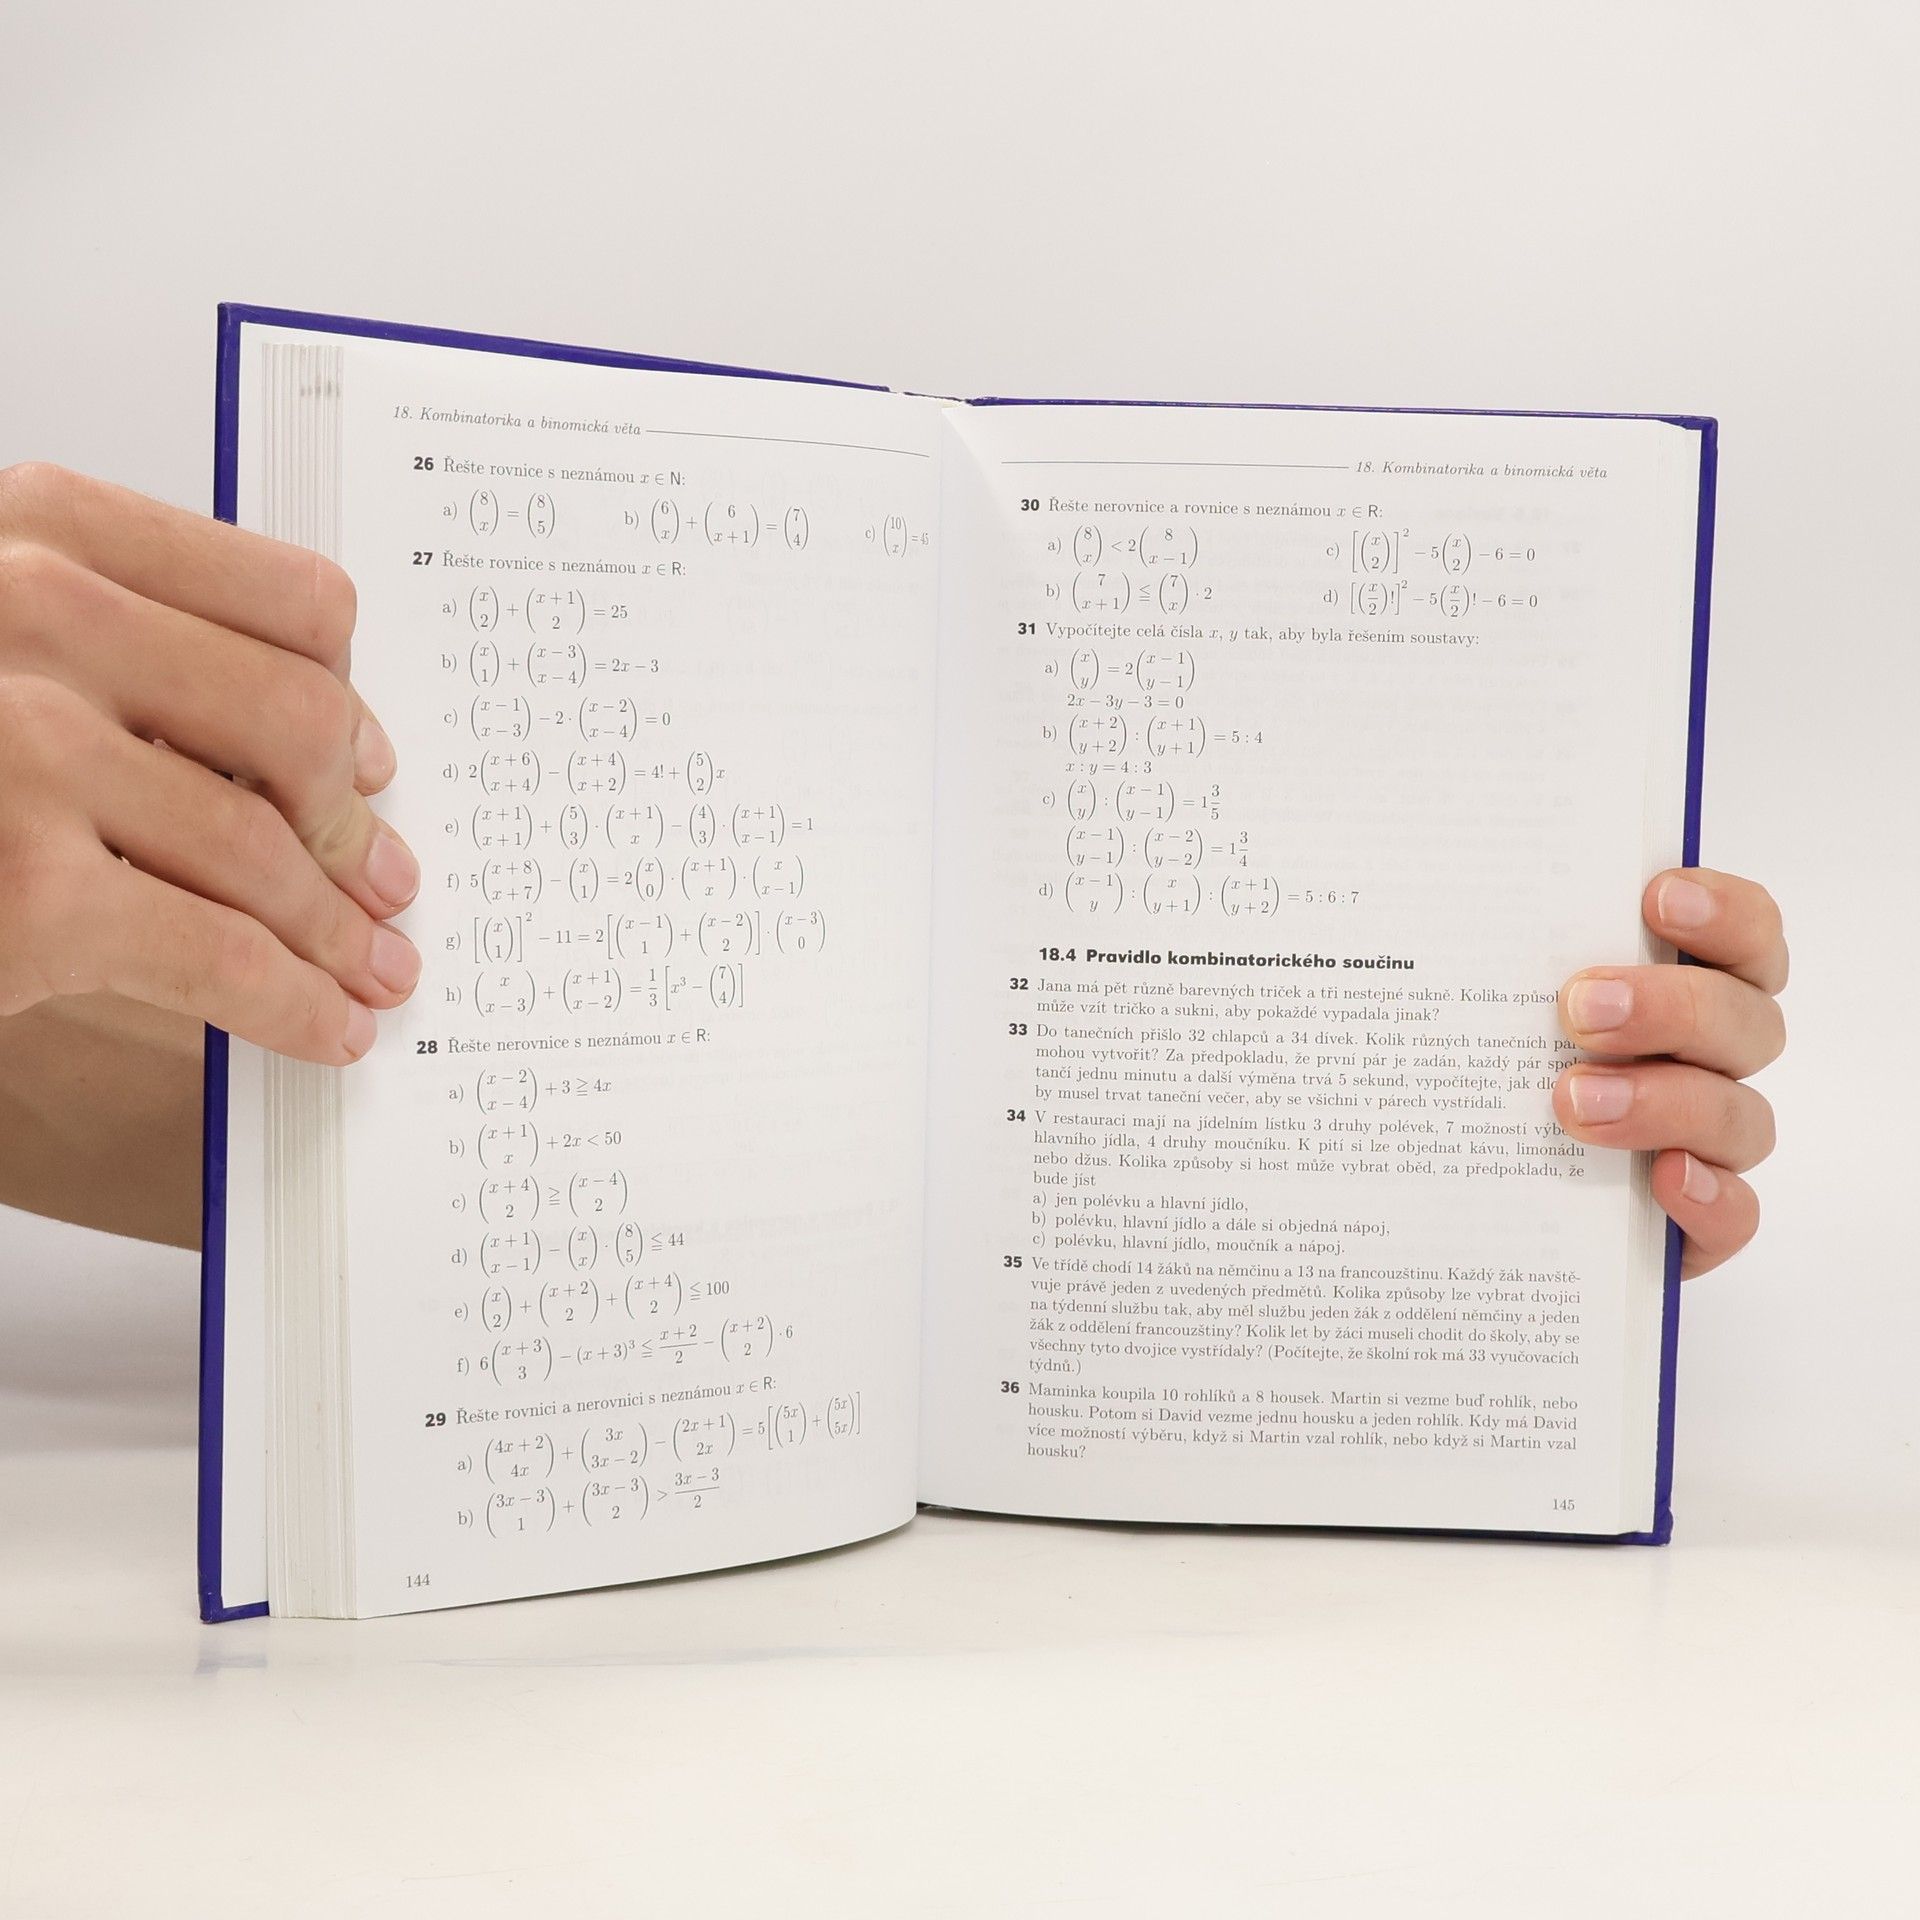 18. Kombinatorika a binomická věta
26 Řešte rovnice s neznámou x ∈ N:
a) (8 x) = (8 5) b) (6 x) + (6 x + 1) = (7 4) c) (10 x) = 45
27 Řešte rovnice s neznámou x ∈ R:
a) (x 2) + (x + 1 2) = 25
b) (x 1) + (x − 3 x − 4) = 2x − 3
c) (x − 1 x − 3) − 2 · (x − 2 x − 4) = 0
d) 2(x + 6 x + 4) − (x + 4 x + 2) = 4! + (5 2)x
e) (x + 1 x + 1) + (5 3) · (x + 1 x) − (4 3) · (x + 1 x − 1) = 1
f) 5(x + 8 x + 7) − (x 1) = 2(x 0) · (x + 1 x) · (x x − 1)
g) [(x 1)]² − 11 = 2[(x − 1 1) + (x − 2 2)] · (x − 3 0)
h) (x x − 3) + (x + 1 x − 2) = 1/3 [x³ − (7 4)]
28 Řešte nerovnice s neznámou x ∈ R:
a) (x − 2 x − 4) + 3 ≧ 4x
b) (x + 1 x) + 2x < 50
c) (x + 4 2) ≧ (x − 4 2)
d) (x + 1 x − 1) − (x x) · (8 5) ≦ 44
e) (x 2) + (x + 2 2) + (x + 4 2) ≦ 100
f) 6(x + 3 3) − (x + 3)³ ≦ (x + 2)/2 − (x + 2 2) · 6
29 Řešte rovnici a nerovnici s neznámou x ∈ R:
a) (4x + 2 4x) + (3x 3x − 2) − (2x + 1 2x) = 5[(5x 1) + (5x 5x)]
b) (3x − 3 1) + (3x − 3 2) > (3x − 3)/2
144
18. Kombinatorika a binomická věta
30 Řešte nerovnice a rovnice s neznámou x ∈ R:
a) (8 x) < 2(8 x − 1) c) [(x 2)]² − 5(x 2) − 6 = 0
b) (7 x + 1) ≦ (7 x) · 2 d) [(x/2)!]² − 5(x/2)! − 6 = 0
31 Vypočítejte celá čísla x, y tak, aby byla řešením soustavy:
a) (x y) = 2(x − 1 y − 1)
2x − 3y − 3 = 0
b) (x + 2 y + 2) : (x + 1 y + 1) = 5 : 4
x : y = 4 : 3
c) (x y) : (x − 1 y − 1) = 1 3/5
(x − 1 y − 1) : (x − 2 y − 2) = 1 3/4
d) (x − 1 y) : (x y + 1) : (x + 1 y + 2) = 5 : 6 : 7
18.4 Pravidlo kombinatorického součinu
32 Jana má pět různě barevných triček a tři nestejné sukně. Kolika
může vzít tričko a sukni, aby pokaždé vypadala jinak?
33 Do tanečních přišlo 32 chlapců a 34 dívek. Kolik různých tanečních
mohou vytvořit? Za předpokladu, že první pár je zadán, každý pár
tančí jednu minutu a další výměna trvá 5 sekund, vypočítejte, jak
by musel trvat taneční večer, aby se všichni v párech vystřídali.
34 V restauraci mají na jídelním lístku 3 druhy polévek, 7 možností
hlavního jídla, 4 druhy moučníku. K pití si lze objednat kávu, limonádu
nebo džus. Kolika způsoby si host může vybrat oběd, za předpokladu, že
bude jíst
a) jen polévku a hlavní jídlo,
b) polévku, hlavní jídlo a dále si objedná nápoj,
c) polévku, hlavní jídlo, moučník a nápoj.
35 Ve třídě chodí 14 žáků na němčinu a 13 na francouzštinu. Každý žák navště-
vuje právě jeden z uvedených předmětů. Kolika způsoby lze vybrat dvojici
na týdenní službu tak, aby měl službu jeden žák z oddělení němčiny a jeden
žák z oddělení francouzštiny? Kolik let by žáci museli chodit do školy, aby se
všechny tyto dvojice vystřídaly? (Počítejte, že školní rok má 33 vyučovacích
týdnů.)
36 Maminka koupila 10 rohlíků a 8 housek. Martin si vezme buď rohlík, nebo
housku. Potom si David vezme jednu housku a jeden rohlík. Kdy má David
více možností výběru, když si Martin vzal rohlík, nebo když si Martin vzal
housku?
145